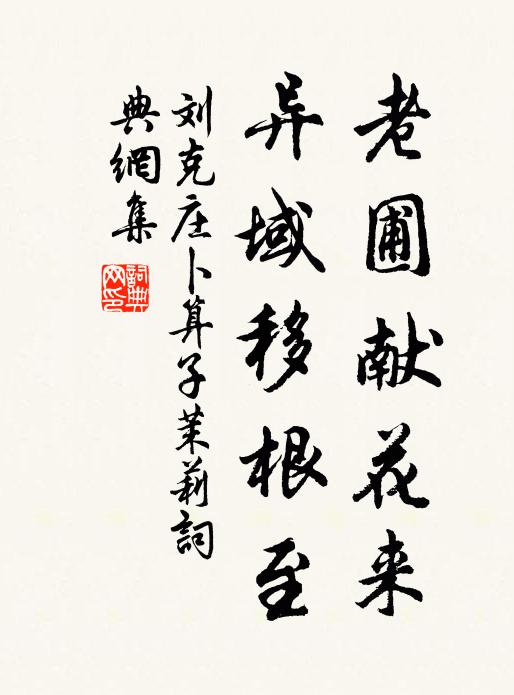 老圃献花来
异域移根至
刘克庄卜算子茉莉詞
典網集
詞典网印